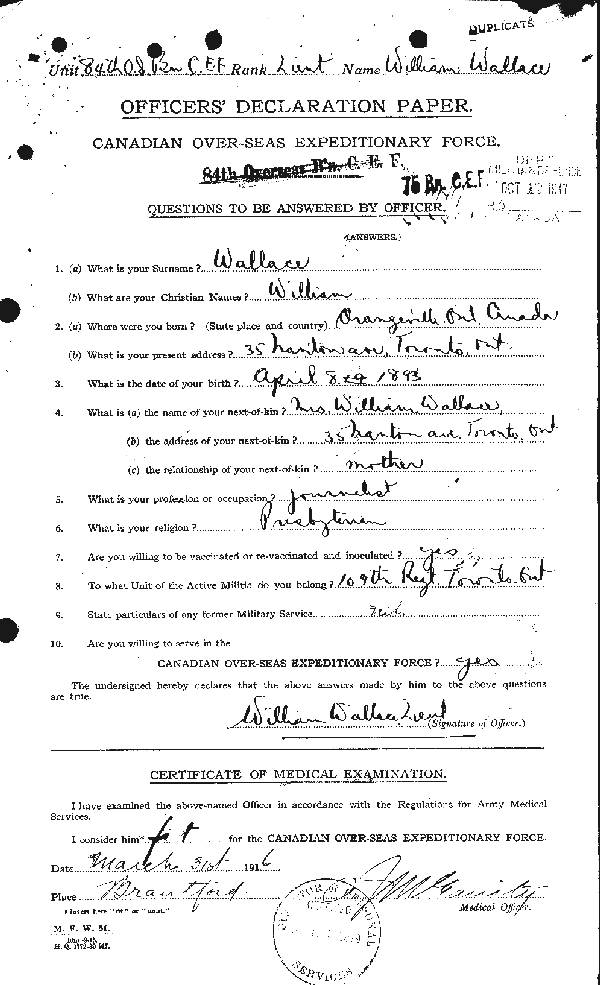 DUPLICATE
Unit 84th O.S. Bn C.E.F. Rank Lieut Name William Wallace
OFFICERS' DECLARATION PAPER.
CANADIAN OVER-SEAS EXPEDITIONARY FORCE.
84th Overseas B'n. C. E. F.
75 Bn. C.E.F.
OCT 1917
QUESTIONS TO BE ANSWERED BY OFFICER.
(ANSWERS.)
1. (a) What is your Surname ? Wallace
(b) What are your Christian Names ? William
2. (a) Where were you born ? (State place and country) Orangeville Ont Canada
(b) What is your present address ? 35 Nanton ave, Toronto, Ont.
3. What is the date of your birth ? April 8 1893
4. What is (a) the name of your next-of-kin ? Mrs. William Wallace,
(b) the address of your next-of-kin ? 35 Nanton ave, Toronto, Ont
(c) the relationship of your next-of-kin ? mother
5. What is your profession or occupation ? Journalist
6. What is your religion ? Presbyterian
7. Are you willing to be vaccinated or re-vaccinated and inoculated ? yes
8. To what Unit of the Active Militia do you belong ? 109th Regt Toronto Ont
9. State particulars of any former Military Service.
10. Are you willing to serve in the
CANADIAN OVER-SEAS EXPEDITIONARY FORCE ? yes
The undersigned hereby declares that the above answers made by him to the above questions
are true.
William Wallace Lieut
(Signature of Officer.)
CERTIFICATE OF MEDICAL EXAMINATION.
I have examined the above-named Officer in accordance with the Regulations for Army Medical
Services.
I consider him* fit for the CANADIAN OVER-SEAS EXPEDITIONARY FORCE.
Date March 31st 1916
Place Brantford
Medical Officer.
*Insert here "fit" or "unfit."
M. F. W. 51.
SERVICES